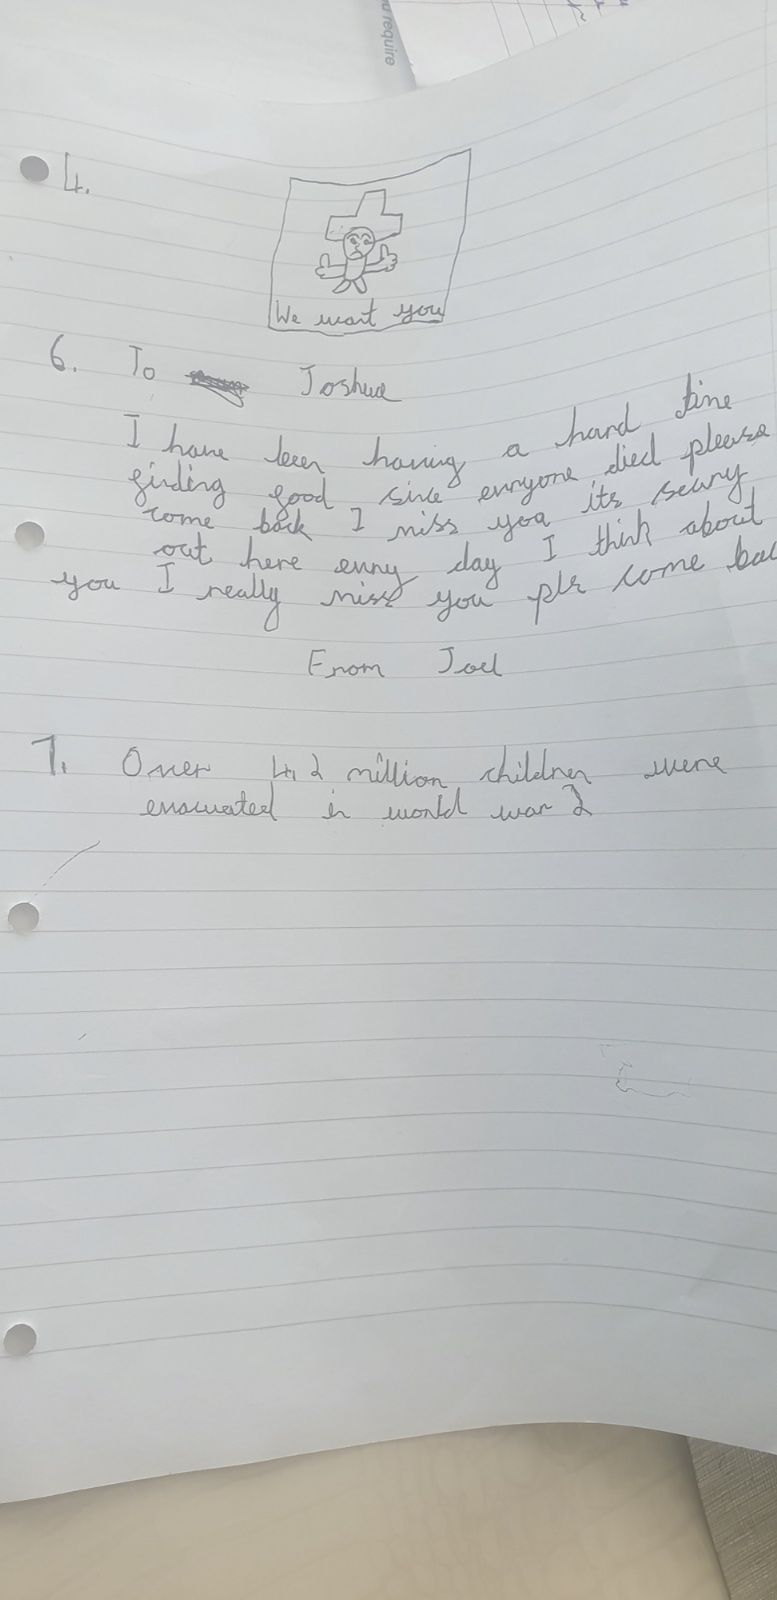 nd require
4.
We want you
6. To Joshua
I have been having a hard time
finding food since enryone died please
come back I miss you its scary
out here enry day I think about
you I really miss you pls come bac
From Joel
7. Over 4.2 million children were
evacuated in world war 2